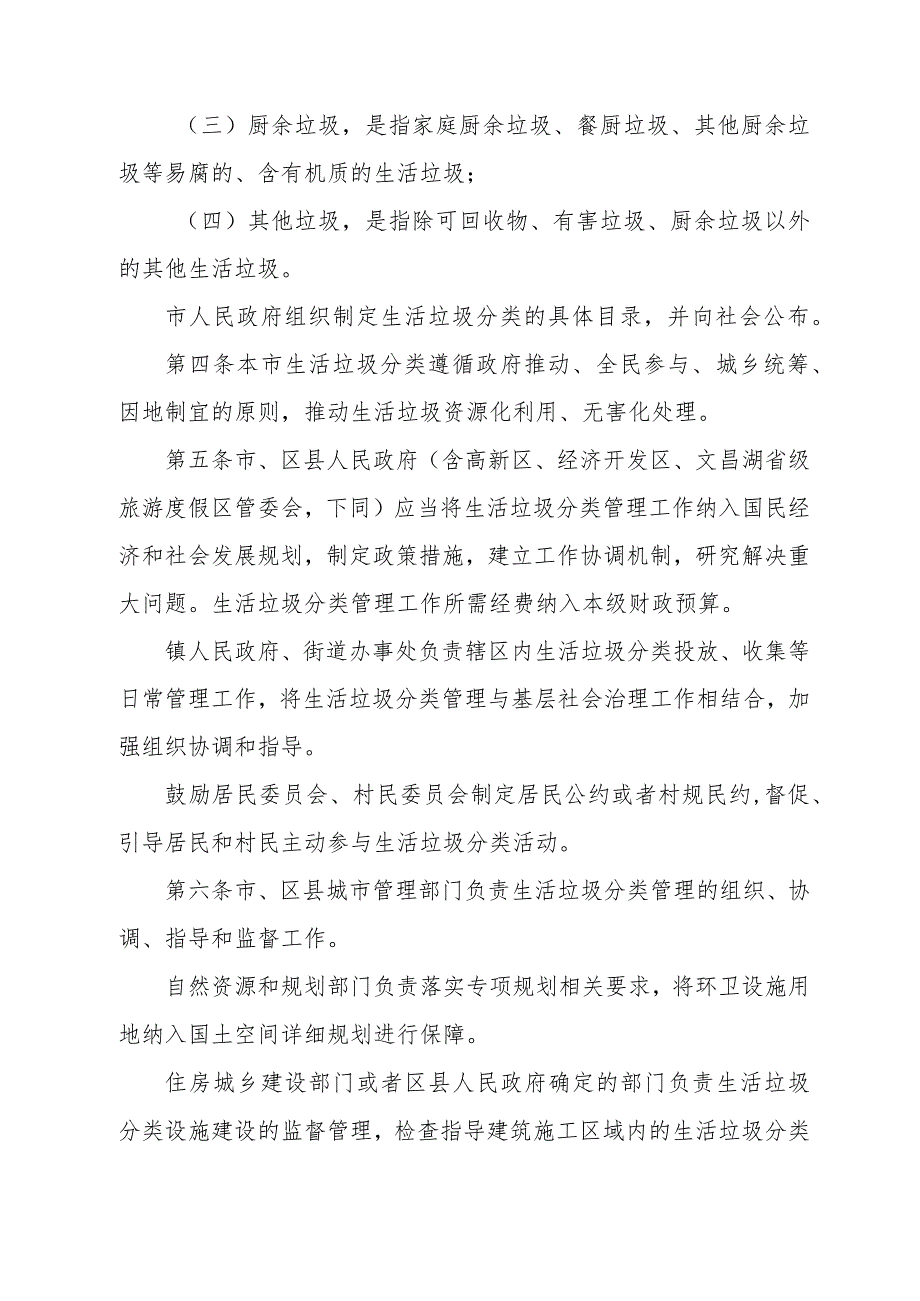 （三）厨余垃圾，是指家庭厨余垃圾、餐厨垃圾、其他厨余垃
圾等易腐的、含有机质的生活垃圾；
（四）其他垃圾，是指除可回收物、有害垃圾、厨余垃圾以外
的其他生活垃圾。
市人民政府组织制定生活垃圾分类的具体目录，并向社会公布。
第四条本市生活垃圾分类遵循政府推动、全民参与、城乡统筹、
因地制宜的原则，推动生活垃圾资源化利用、无害化处理。
第五条市、区县人民政府（含高新区、经济开发区、文昌湖省级
旅游度假区管委会，下同）应当将生活垃圾分类管理工作纳入国民经
济和社会发展规划，制定政策措施，建立工作协调机制，研究解决重
大问题。生活垃圾分类管理工作所需经费纳入本级财政预算。
镇人民政府、街道办事处负责辖区内生活垃圾分类投放、收集等
日常管理工作，将生活垃圾分类管理与基层社会治理工作相结合，加
强组织协调和指导。
鼓励居民委员会、村民委员会制定居民公约或者村规民约,督促、
引导居民和村民主动参与生活垃圾分类活动。
第六条市、区县城市管理部门负责生活垃圾分类管理的组织、协
调、指导和监督工作。
自然资源和规划部门负责落实专项规划相关要求，将环卫设施用
地纳入国土空间详细规划进行保障。
住房城乡建设部门或者区县人民政府确定的部门负责生活垃圾
分类设施建设的监督管理，检查指导建筑施工区域内的生活垃圾分类